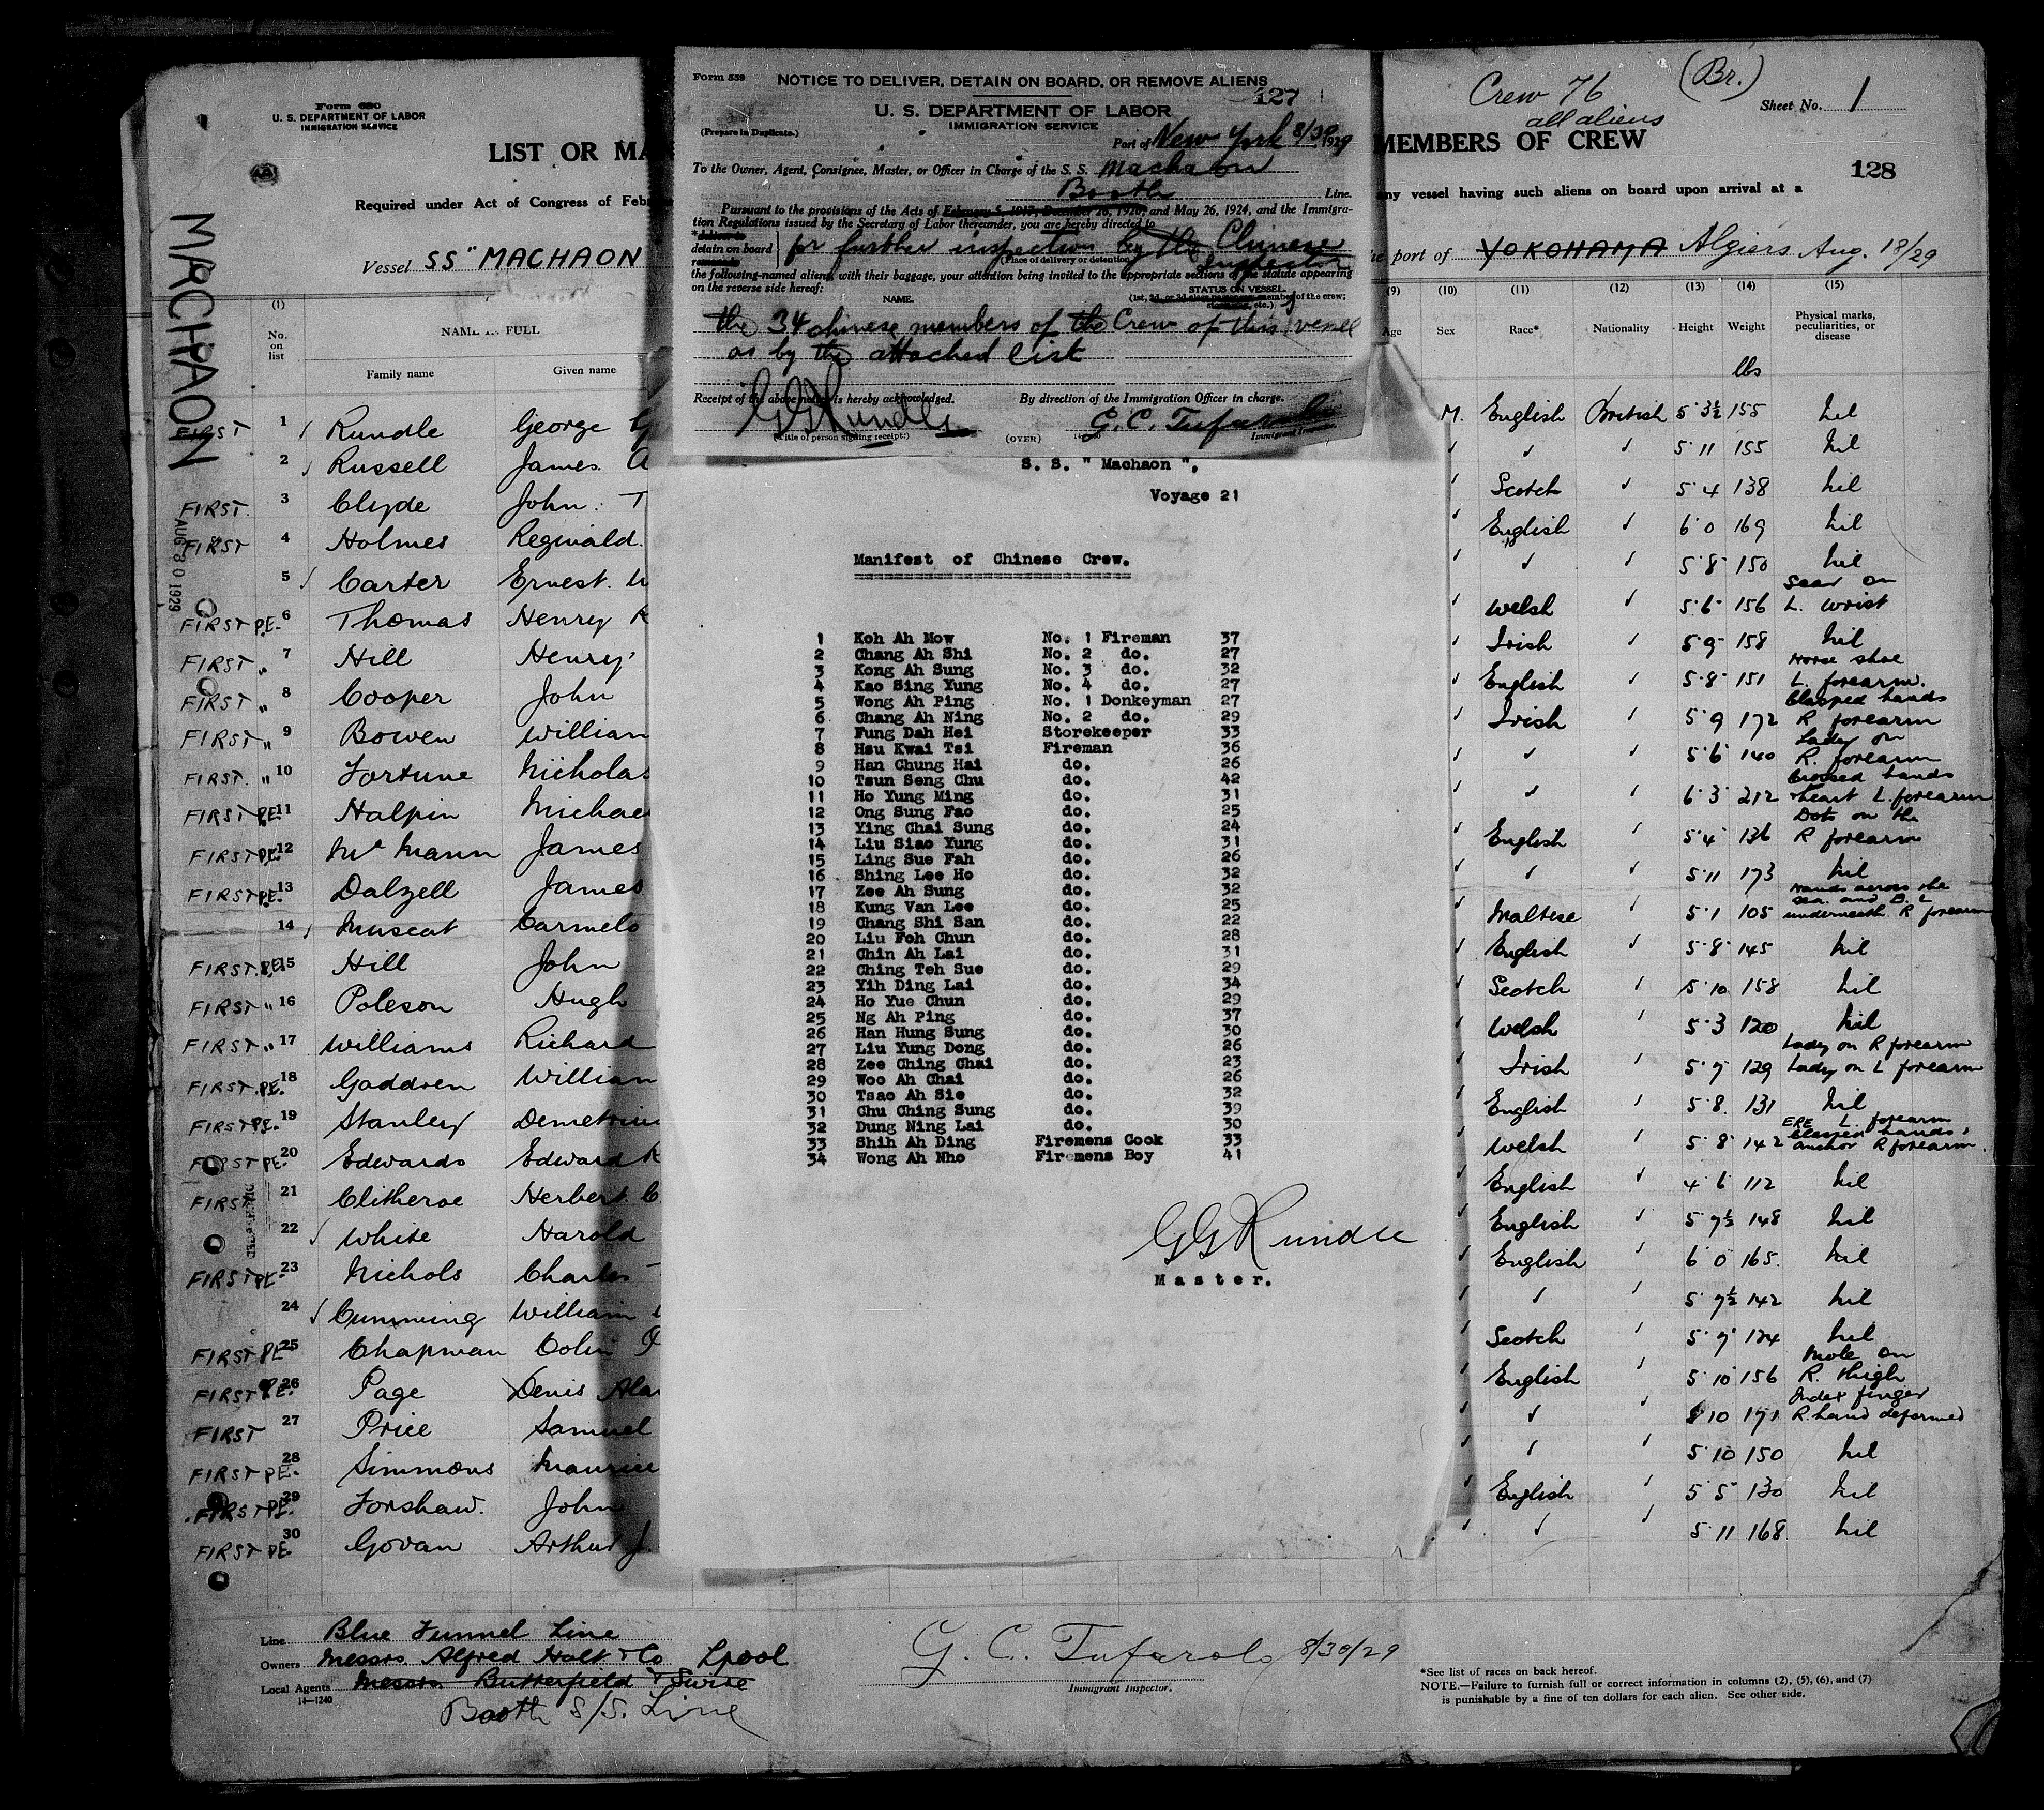 Form 680
U. S. DEPARTMENT OF LABOR
IMMIGRATION SERVICE
LIST OR MA
Required under Act of Congress of Feb
Vessel SS "MACHAON
MACHAON
AUG 30 1929
(1)
No. on list
NAME IN FULL
Family name Given name
FIRST 1 Rundle George
2 Russell James
FIRST. 3 Clyde John. T
FIRST 4 Holmes Reginald.
5 Carter Ernest.
FIRST P.E. 6 Thomas Henry
FIRST " 7 Hill Henry
FIRST " 8 Cooper John
FIRST " 9 Bowen William
FIRST. " 10 Fortune Nicholas
FIRST P.E. 11 Halpin Michae
FIRST P.E. 12 Mc Mann James
FIRST P.E. 13 Dalzell James
14 Muscat Carmelo
FIRST P.E. 15 Hill John
FIRST " 16 Poleson Hugh
FIRST " 17 Williams Richard
FIRST P.E. 18 Gaddren William
FIRST P.E. 19 Stanley Demetriu
FIRST P.E. 20 Edwards Edward
FIRST 21 Clitheroe Herbert. C.
22 White Harold
FIRST P.E. 23 Nichols Charles
24 Cumming William
FIRST P.E. 25 Chapman Colin
FIRST P.E. 26 Page Denis Ala
FIRST 27 Price Samuel
FIRST P.E. 28 Simmons Maurice
FIRST P.E. 29 Forshaw. John
FIRST P.E. 30 Govan Arthur J
Form 539
NOTICE TO DELIVER, DETAIN ON BOARD, OR REMOVE ALIENS
127
U. S. DEPARTMENT OF LABOR
IMMIGRATION SERVICE
(Prepare in Duplicate.)
Port of New York 8/30 1929
To the Owner, Agent, Consignee, Master, or Officer in Charge of the S. S. Machaon
Booth Line.
Pursuant to the provisions of the Acts of February 5, 1917, December 26, 1920, and May 26, 1924, and the Immigra-
tion Regulations issued by the Secretary of Labor thereunder, you are hereby directed to
*deliver to
detain on board
remove to
for further inspection by the Chinese Inspector
(Place of delivery or detention.)
the following-named aliens, with their baggage, your attention being invited to the appropriate sections of the statute appearing
on the reverse side hereof:
NAME.
STATUS ON VESSEL.
(1st, 2d, or 3d class passenger, member of the crew; stowaway, etc.)
the 34 chinese members of the Crew of this vessel
as by the attached list
Receipt of the above notice is hereby acknowledged.
By direction of the Immigration Officer in charge.
GG Rundle
G. C. Tufarolo
(Title of person signing receipt.)
(OVER)
Immigrant Inspector.
S. S. " Machaon ",
Voyage 21
Manifest of Chinese Crew.
1 Koh Ah Mow No. 1 Fireman 37
2 Chang Ah Shi No. 2 do. 27
3 Kong Ah Sung No. 3 do. 32
4 Kao Sing Yung No. 4 do. 27
5 Wong Ah Ping No. 1 Donkeyman 27
6 Chang Ah Ning No. 2 do. 29
7 Fung Dah Hei Storekeeper 33
8 Hsu Kwai Tsi Fireman 36
9 Han Chung Hai do. 26
10 Tsun Seng Chu do. 42
11 Ho Yung Ming do. 31
12 Ong Sung Fao do. 25
13 Ying Chai Sung do. 24
14 Liu Siao Yung do. 31
15 Ling Sue Fah do. 26
16 Shing Lee Ho do. 32
17 Zee Ah Sung do. 32
18 Kung Van Lee do. 25
19 Chang Shi San do. 22
20 Liu Foh Chun do. 28
21 Chin Ah Lai do. 31
22 Ching Teh Sue do. 29
23 Yih Ding Lai do. 34
24 Ho Yue Chun do. 29
25 Ng Ah Ping do. 37
26 Han Hung Sung do. 30
27 Liu Yung Dong do. 26
28 Zee Ching Chai do. 23
29 Woo Ah Chai do. 26
30 Tsao Ah Sie do. 32
31 Chu Ching Sung do. 39
32 Dung Ning Lai do. 30
33 Shih Ah Ding Firemens Cook 33
34 Wong Ah Nho Firemens Boy 41
GG Rundle
Master.
Crew 76
all aliens
(Br.)
Sheet No. 1
MEMBERS OF CREW
128
any vessel having such aliens on board upon arrival at a
port of YOKOHAMA Algiers Aug. 18/29
(9) (10) (11) (12) (13) (14) (15)
Age Sex Race* Nationality Height Weight Physical marks, peculiarities, or disease
lbs
M. English British 5 3½ 155 nil
5 11 155 nil
Scotch 5 4 138 nil
English 6 0 169 nil
5 8 150 nil
Welsh 5 6 156 Scar on L. wrist
Irish 5 9 158 nil
English 5 8 151 Horse shoe L. forearm.
Irish 5 9 172 Clasped hands R forearm
5 6 140 Lady on R. forearm
6 3 212 Crossed hands + heart L. forearm
English 5 4 136 Dots on the R forearm
5 11 173 nil
Maltese 5 1 105 Hands across the sea and B. L underneath R forearm
English 5 8 145 nil
Scotch 5 10 158 nil
Welsh 5 3 120 nil
Irish 5 7 129 Lady on R forearm Lady on L forearm
English 5 8 131 nil
Welsh 5 8 142 ERE L. forearm Clasped hands, anchor R forearm.
English 4 6 112 nil
English 5 7½ 148 nil
English 6 0 165. nil
5 7½ 142 nil
Scotch 5 7 124 nil
English 5 10 156 Mole on R. thigh
5 10 171 Index finger R. hand deformed
5 10 150 nil
English 5 5 130 nil
5 11 168 nil
Line Blue Funnel Line
Owners Messrs Alfred Holt & Co Lpool
Local Agents Messrs. Butterfield & Swire
14—1240
Booth S/S. Line
G. C. Tufarolo 8/30/29
Immigrant Inspector.
*See list of races on back hereof.
NOTE.—Failure to furnish full or correct information in columns (2), (5), (6), and (7)
is punishable by a fine of ten dollars for each alien. See other side.